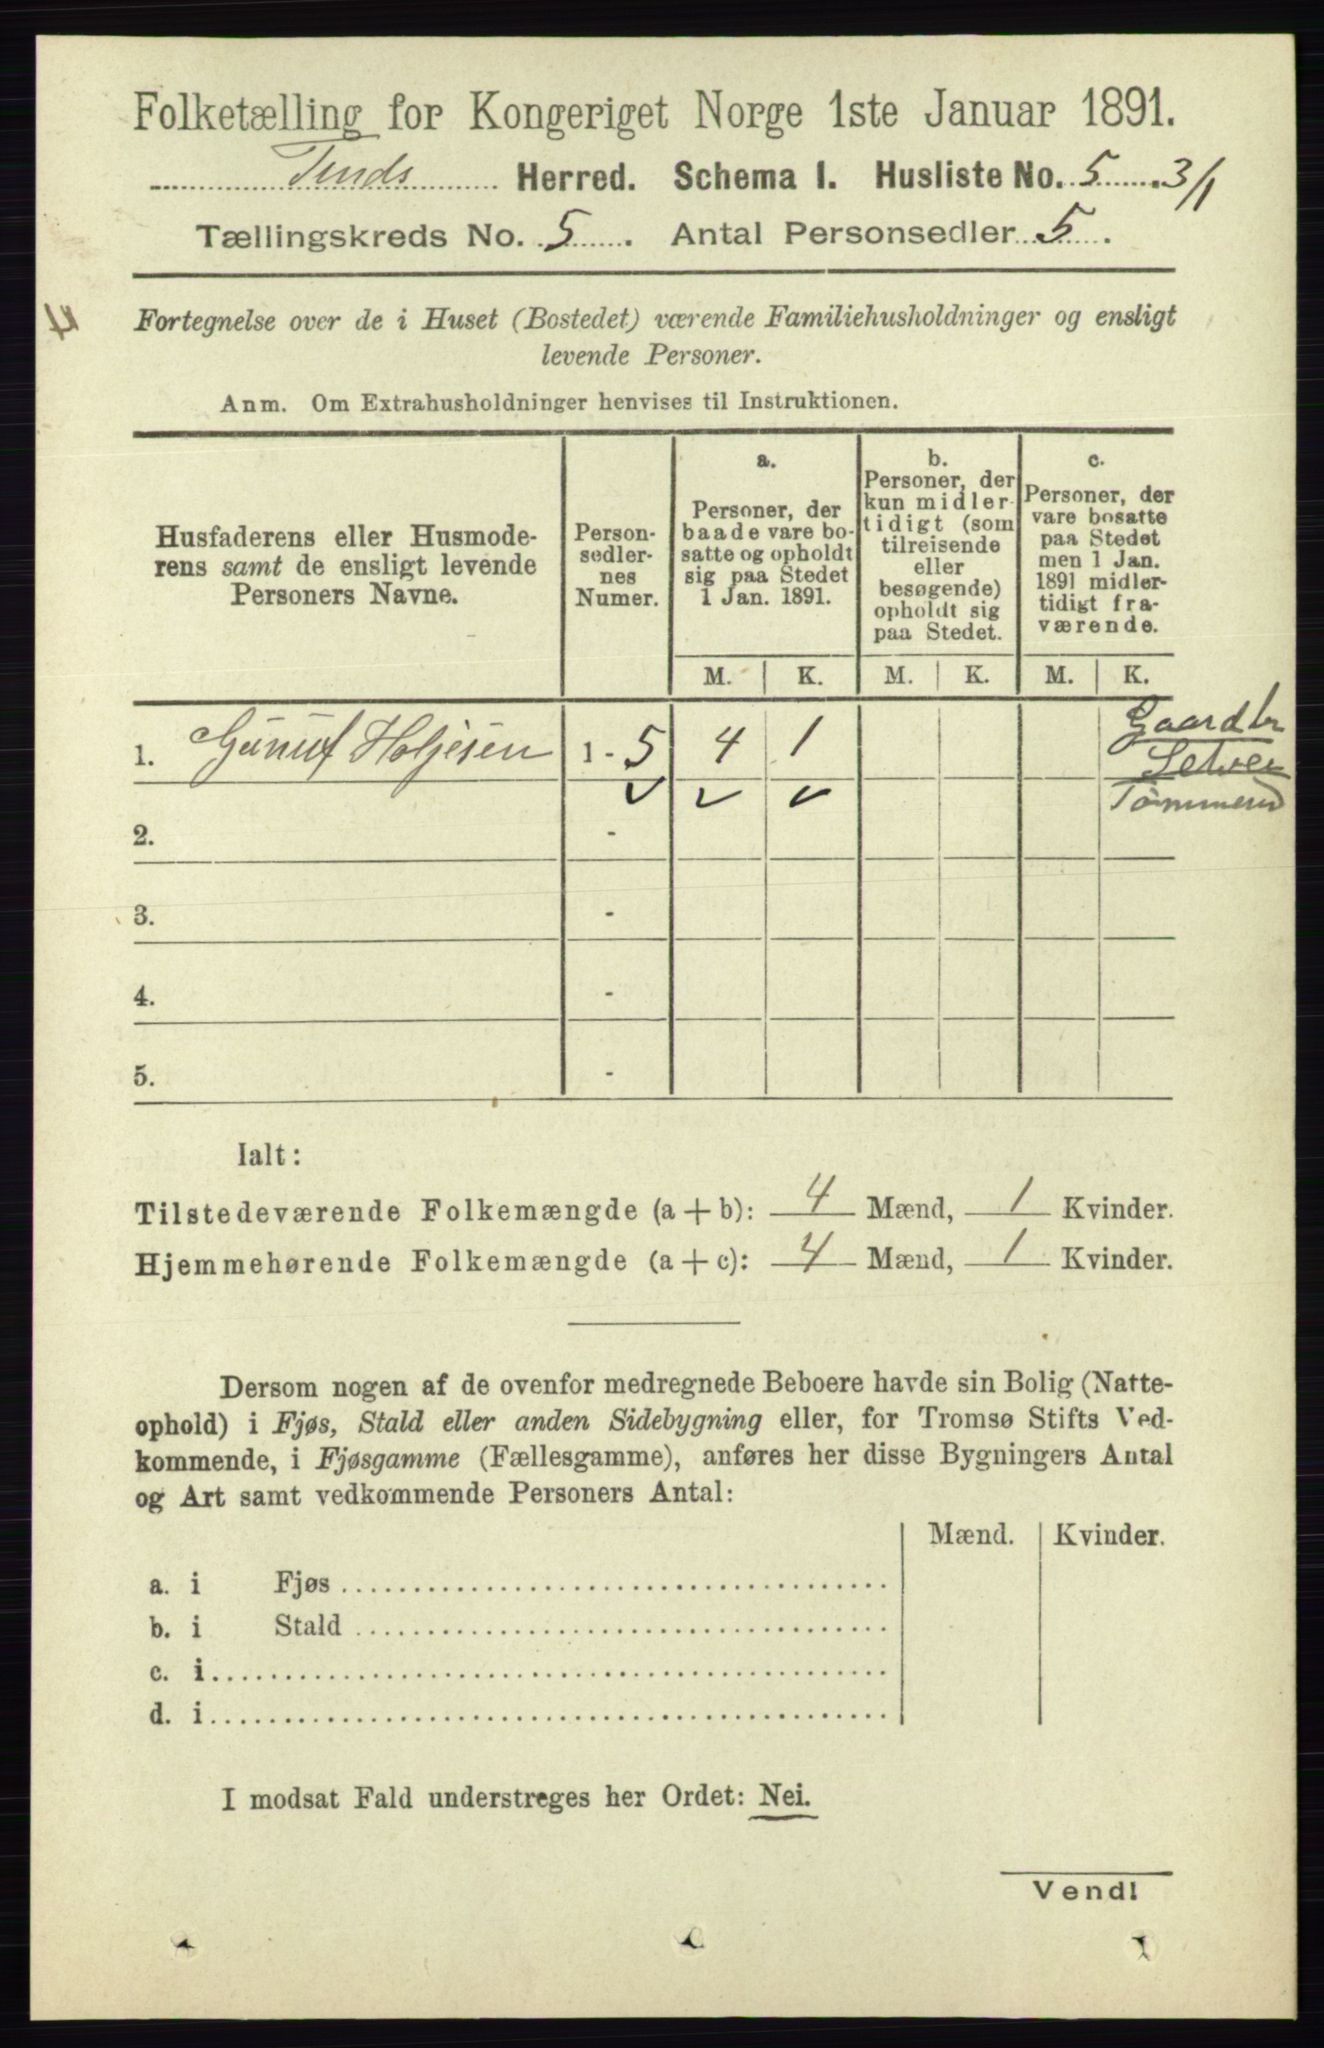 Folketælling for Kongeriget Norge 1ste Januar 1891.
Tinds Herred. Schema I. Husliste No. 5. 3/1
Tællingskreds No. 5. Antal Personsedler 5.
Fortegnelse over de i Huset (Bostedet) værende Familiehusholdninger og ensligt
levende Personer.
Anm. Om Extrahusholdninger henvises til Instruktionen.
Husfaderens eller Husmode-
rens samt de ensligt levende
Personers Navne.
Person-
sedler-
nes
Numer.
a.
Personer, der
baade vare bo-
satte og opholdt
sig paa Stedet
1 Jan. 1891.
b.
Personer, der
kun midler-
tidigt (som
tilreisende
eller
besøgende)
opholdt sig
paa Stedet.
c.
Personer, der
vare bosatte
paa Stedet
men 1 Jan.
1891 midler-
tidigt fra-
værende.
M. K. M. K. M. K.
1. Gunuf Holjesen 1 - 5 4 1
Gaardbr
Selveier
Tømmerm
2. -
3. -
4. -
5. -
Ialt:
Tilstedeværende Folkemængde (a + b): 4 Mænd, 1 Kvinder.
Hjemmehørende Folkemængde (a + c): 4 Mænd, 1 Kvinder.
Dersom nogen af de ovenfor medregnede Beboere havde sin Bolig (Natte-
ophold) i Fjøs, Stald eller anden Sidebygning eller, for Tromsø Stifts Ved-
kommende, i Fjøsgamme (Fællesgamme), anføres her disse Bygningers Antal
og Art samt vedkommende Personers Antal:
Mænd. Kvinder.
a. i Fjøs
b. i Stald
c. i
d. i
I modsat Fald understreges her Ordet: Nei.
Vend!